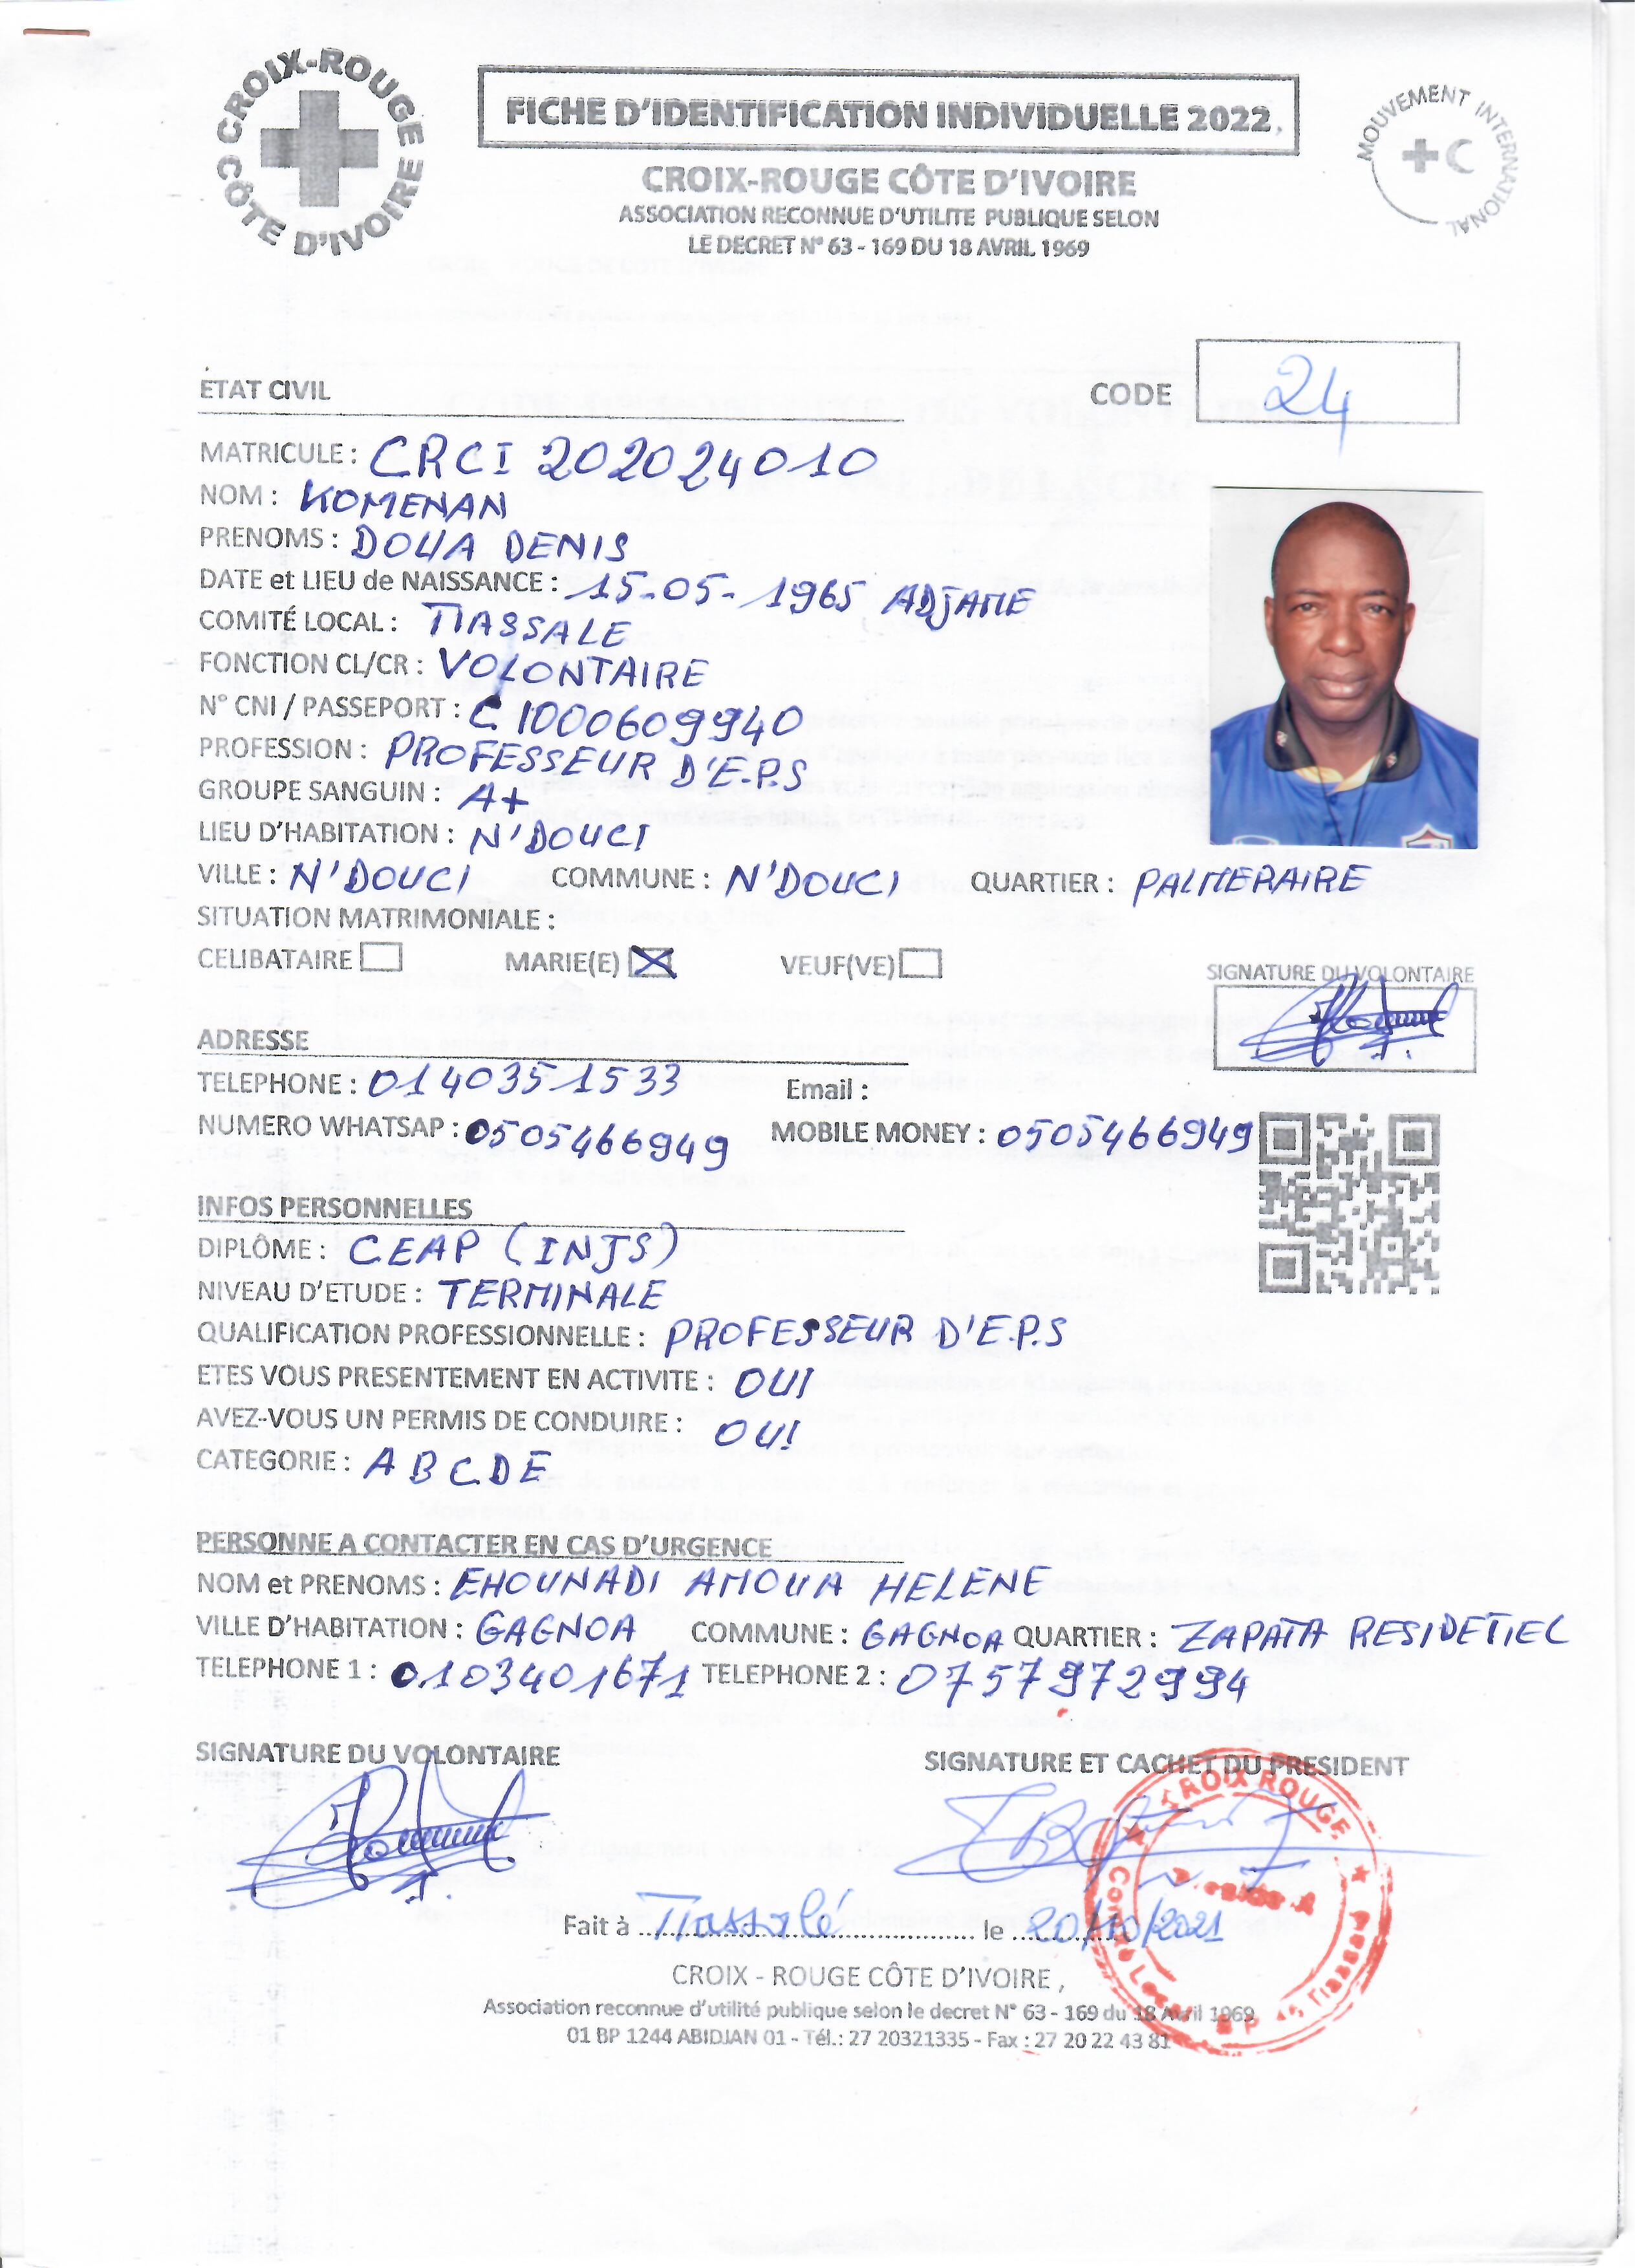 CROIX-ROUGE CÔTE D'IVOIRE
FICHE D'IDENTIFICATION INDIVIDUELLE 2022
MOUVEMENT INTERNATIONAL
CROIX-ROUGE CÔTE D'IVOIRE
ASSOCIATION RECONNUE D'UTILITE PUBLIQUE SELON
LE DECRET N° 63 - 169 DU 18 AVRIL 1969
ETAT CIVIL CODE 24
MATRICULE : CRCI 202024010
NOM : KOMENAN
PRENOMS : DOUA DENIS
DATE et LIEU de NAISSANCE : 15-05-1965 ADJAME
COMITÉ LOCAL : TIASSALE
FONCTION CL/CR : VOLONTAIRE
N° CNI / PASSEPORT : C1000609940
PROFESSION : PROFESSEUR D'E.P.S
GROUPE SANGUIN : A+
LIEU D'HABITATION : N'DOUCI
VILLE : N'DOUCI COMMUNE : N'DOUCI QUARTIER : PALMERAIRE
SITUATION MATRIMONIALE :
CELIBATAIRE MARIE(E) VEUF(VE)
SIGNATURE DU VOLONTAIRE
ADRESSE
TELEPHONE : 0140351533 Email :
NUMERO WHATSAP : 0505466949 MOBILE MONEY : 0505466949
INFOS PERSONNELLES
DIPLÔME : CEAP (INJS)
NIVEAU D'ETUDE : TERMINALE
QUALIFICATION PROFESSIONNELLE : PROFESSEUR D'E.P.S
ETES VOUS PRESENTEMENT EN ACTIVITE : OUI
AVEZ-VOUS UN PERMIS DE CONDUIRE : OUI
CATEGORIE : A B C D E
PERSONNE A CONTACTER EN CAS D'URGENCE
NOM et PRENOMS : EHOUNADI AMOUA HELENE
VILLE D'HABITATION : GAGNOA COMMUNE : GAGNOA QUARTIER : ZAPATA RESIDETIEL
TELEPHONE 1 : 0103401671 TELEPHONE 2 : 0757972994
SIGNATURE DU VOLONTAIRE SIGNATURE ET CACHET DU PRESIDENT
CROIX ROUGE
Fait à Tiassalé le 20/10/2021
CROIX - ROUGE CÔTE D'IVOIRE ,
Association reconnue d'utilité publique selon le decret N° 63 - 169 du 18 Avril 1969
01 BP 1244 ABIDJAN 01 - Tél.: 27 20321335 - Fax : 27 20 22 43 81